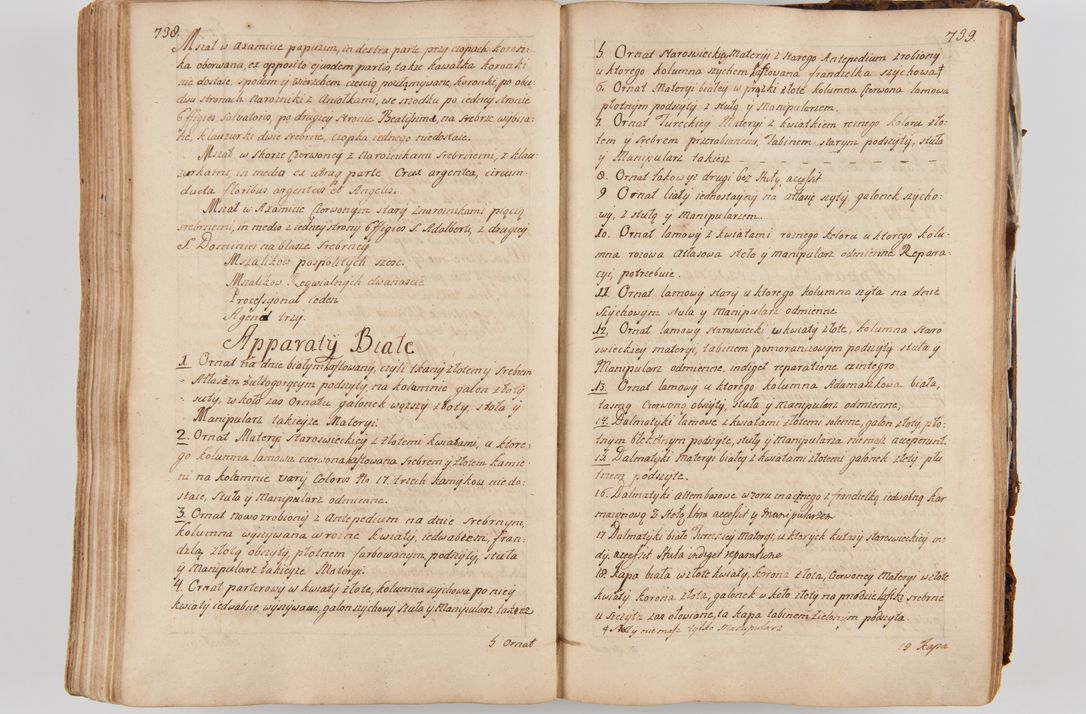 738.
Mszał w Axamicie papuzim, in dextra parte przy czopach koron-
ka oberwana, ex opposito eiusdem partis, także kawałka koronki
nie dostaie, spodem y wierzchem częścią połamywane koronki, po obu-
dwu stronach Narożniki z Aniołkami, we srzodku po iedney stronie
Effigies Salvatoris, po drugiey stronie Beatissimæ, na srebrze wybiia-
ne, klauzurki dwie srebrne, czopka iednego niedostaie.
Mszał w Skorze Czerwoney z Narożnikami Srebrnemi, z klau-
zurkami, in medio ex utraq parte Crux argentea, circum-
ducta floribus argenteis et Angelis.
Mszał w Axamicie Czerwonym stary z narożnikami pięcią
srebrnemi, in medio z iedney strony Effigies S. Adalberti, z drugiey
S. Dominici na blasze Srebrney
Mszalikow pospolitych szesc.
Mszalikow Requialnych dwanascie
Processyonał ieden
Agend trzy.
Apparaty Białe
1. Ornat na dnie białym haftowany, czyli tkany złotem y Srebrem
Atłasem żółtogorącym podszyty, na kolumnie galon złoty
suty, w koło zas Ornatu galonek węższy złoty, stoła y
Manipularz takieyże Materyi.
2. Ornat Materyi Staroswieckiey z złotemi kwiatami, u ktore-
go kolumna lamowa czerwona haftowana srebrem y złotem kamie-
ni na kolumnie varij Coloris No 17. trzech kamykow niedo-
staie, Stuła y Manipularz odmienne.
3. Ornat nowo zrobiony z Antepedium na dnie srebrnym,
kolumna wyszywana w rożne kwiaty, iedwabiem, fran-
dzlą złotą obszyty, płotnem farbowanym podszyty, stuła
y Manipularz takieyże Materyi.
4. Ornat parterowy w kwiaty złote, kolumna szychowa po niey
kwiaty iedwabne wyszywane, galon szychowy Stuła y Manipularz takież
5 Ornat
739.
5. Ornat Staroswieckiey Materyi z starego Antepedium zrobiony
u ktorego kolumna szychem haftowana frandzelka szychowa
6. Ornat Materyi białey w prążki złote kolumna Czerwona lamowa
płotnym podszyty z stułą y Manipularzem.
7. Ornat Tureckiey Materyi z kwiatkiem roznego koloru zło-
tem y Srebrem przerabianem, Tabinem starym podszyty, stuła
y Manipularz takiesz
8. Ornat takowyż drugi bez Stuły, acessit
9 Ornat biały iednostayny na atłasię szyty, galonek szycho-
wy, z stułą y Manipularzem.
10. Ornat lamowy z kwiatami roznego koloru u ktorego kolu-
mna rozowa Atłasowa stoła y manipularz odmienne Repara-
cyi, potrzebuie.
11. Ornat lamowy stary u ktorego kolumna szyta na dnie
szychowym stuła y Manipularz odmienne
12. Ornat lamowy staroswiecki w kwiaty złote, kolumna staro
swieckiey materyi, tabinem pomoranczowym podszyty stuła y
Manipularz odmienne, indiget reparatione ex integro
13. Ornat lamowy u ktorego kolumna Adamaszkowa biała,
tasmą Czerwoną obszyty, Stuła y Manipularz odmienne,
14. Dalmatyki lamowe z kwiatami złotemi solenne, galon złoty, pło-
tnym błekitnym podszyte, stuły y Manipularza niemasz acceperunt.
15. Dalmatyki Materyi białey z kwiatami złotemi galonek złoty płu
tnem podszyte.
16. Dalmatyki attembasowe wzoru iednego z frandzelką iedwabną kar
mazynową Z stołą una acessit y Manipularzem
17 Dalmatyki białe Tureckiey Materyi, u ktorych kutasy staroswieckiey mo
dy, accessit Stuła indiget reparature
18. Kapa biała w złote kwiaty, korona złota, Czerwoney Materyi w złote
kwiaty korona złota, galonek w koło złoty na przodzie haftki srebrne
u Szczytu zas ołowiane, ta kapa tabinem zielonym podszyta.
4 Stuły nie masz tylko Manipularz
19 Kapa